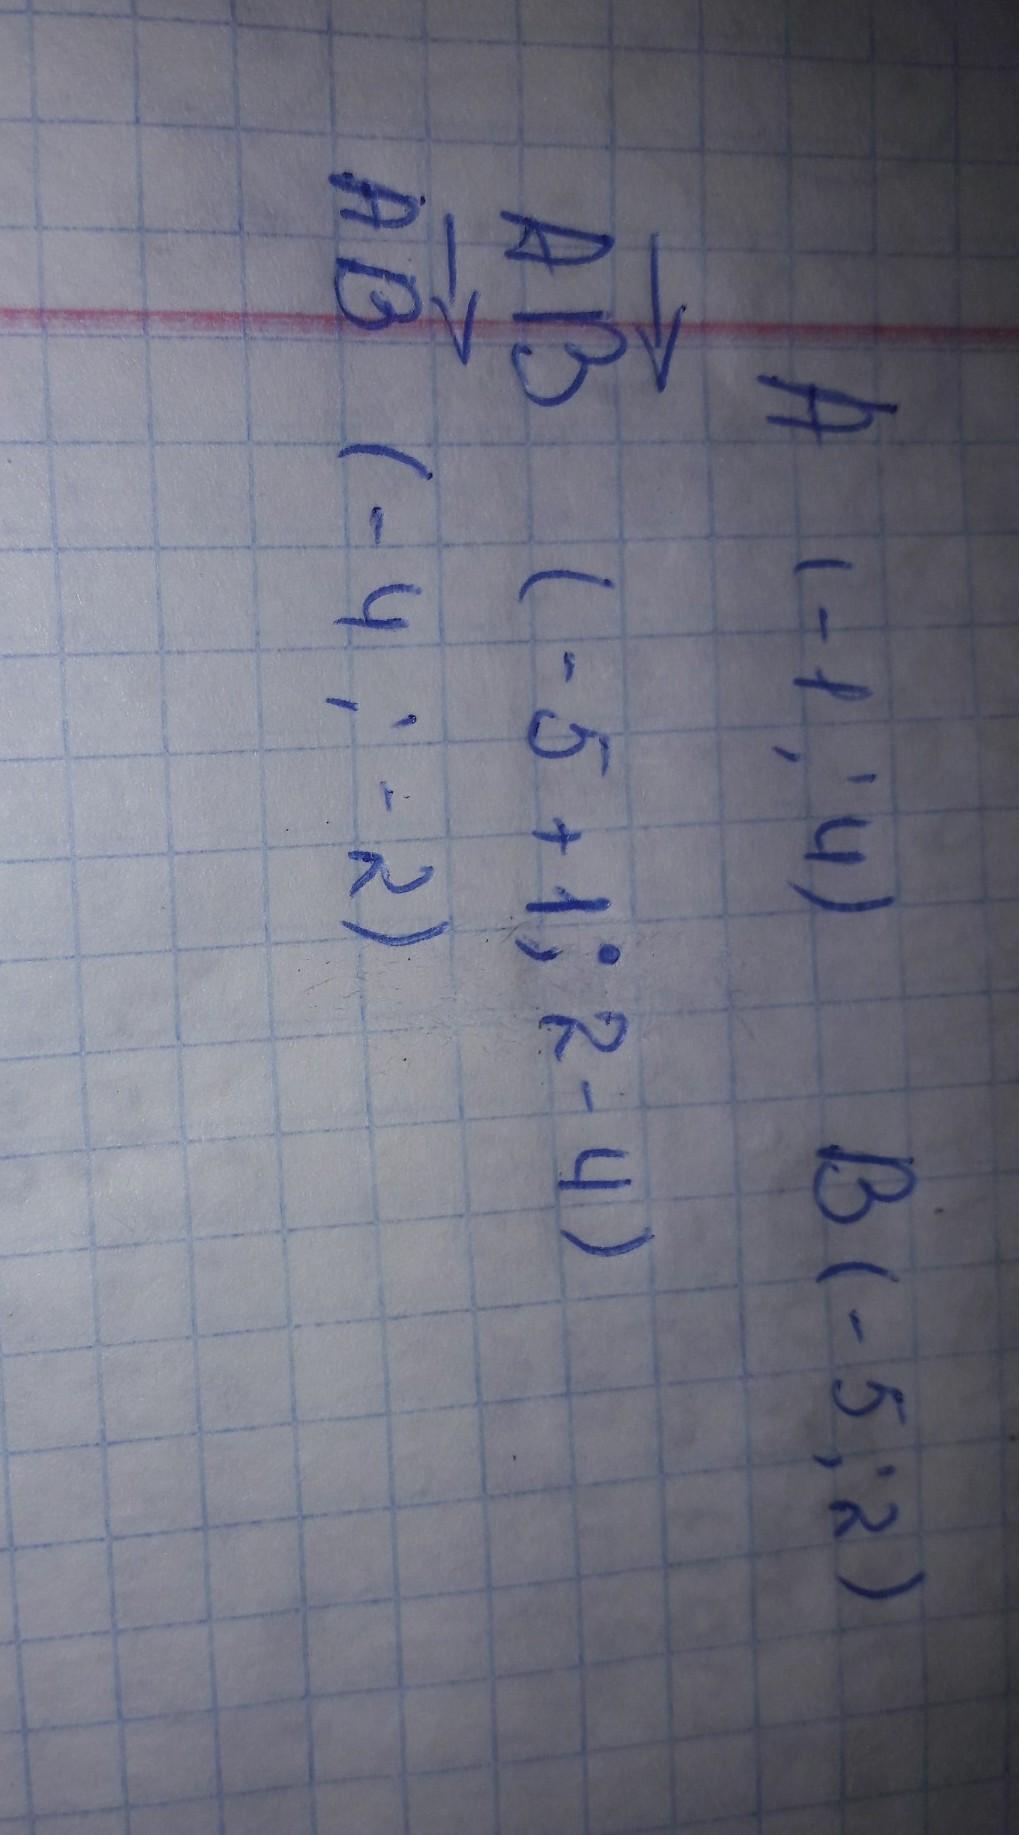 A (-1; 4) B (-5; 2)
→
AB (-5 + 1; 2 - 4)
→
AB (-4; -2)